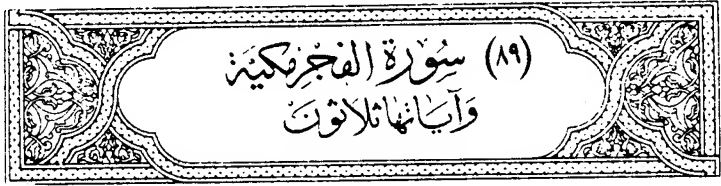 (٨٩) سُورَة الفَجْرِ مَكِيَّة
وَآيَاتها ثلاثونَ